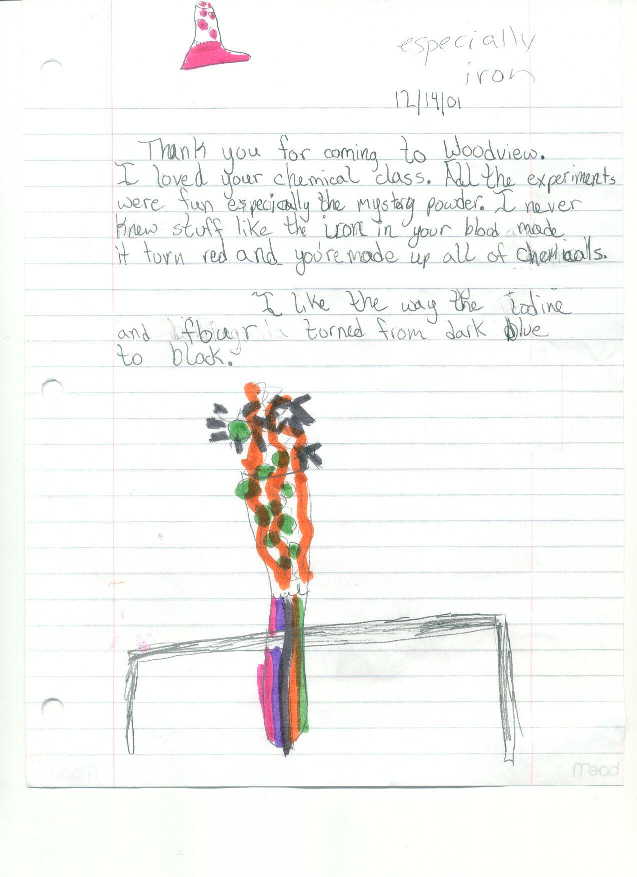 especially
iron
12/14/01
Thank you for coming to Woodview.
I loved your chemical class. All the experiments
were fun especially the mystery powder. I never
knew stuff like the iron in your blood made
it turn red and you're made up all of chemicals.
I like the way the iodine
and turned from dark blue
to black.
Mead